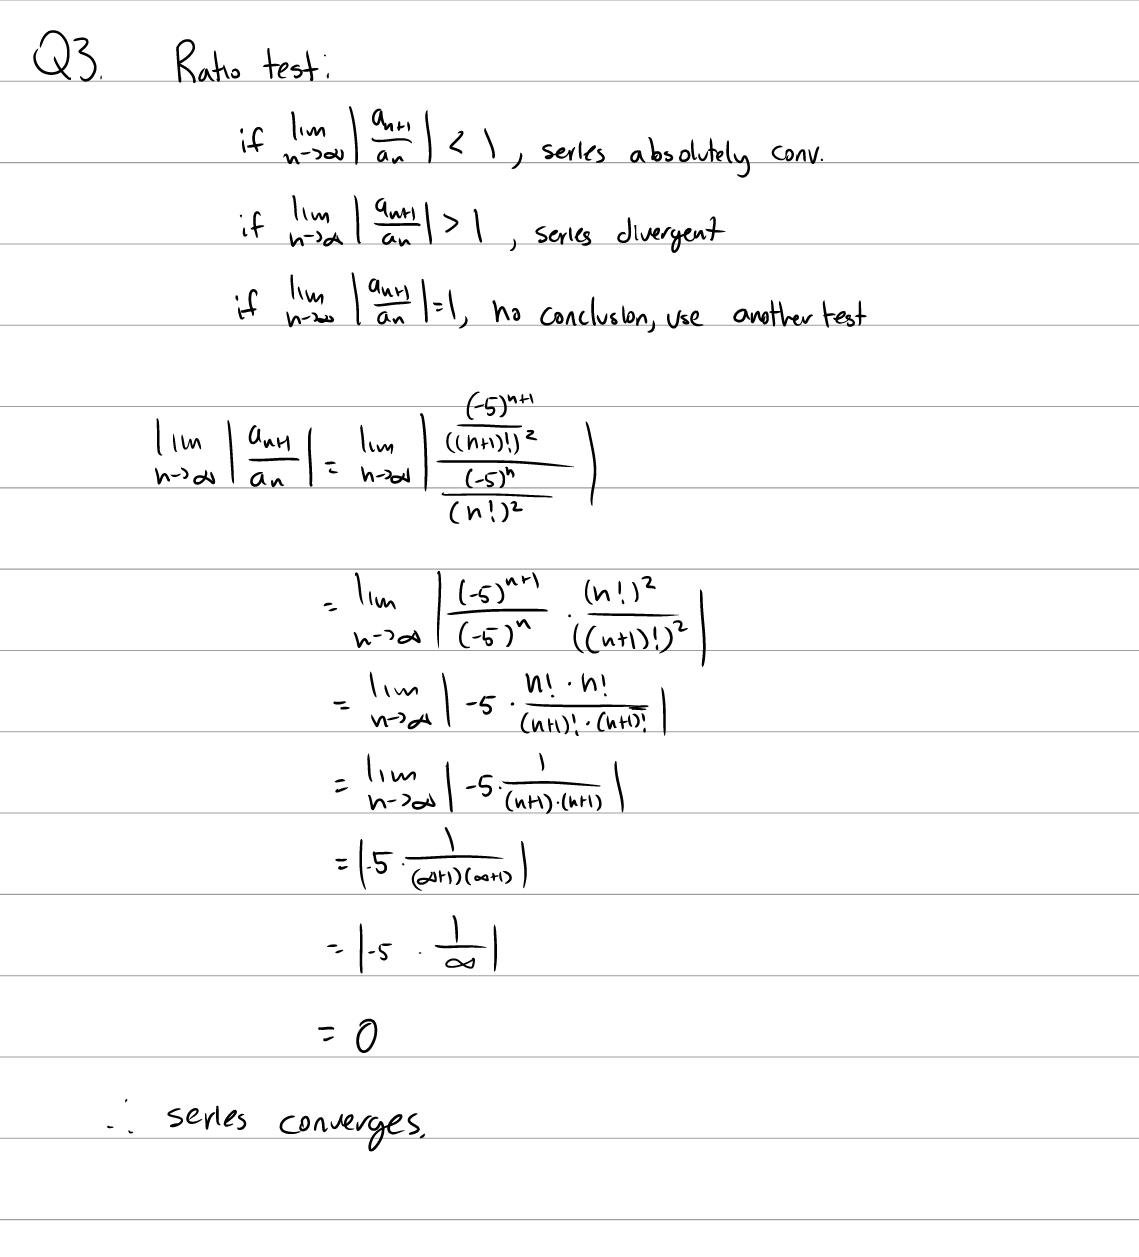 Q3. Ratio test:
if lim n->∞ | a_{n+1} / a_n | < 1, series absolutely conv.
if lim n->∞ | a_{n+1} / a_n | > 1, series divergent
if lim n->∞ | a_{n+1} / a_n | = 1, no conclusion, use another test
lim n->∞ | a_{n+1} / a_n | = lim n->∞ | ((-5)^{n+1} / ((n+1)!)^2) / ((-5)^n / (n!)^2) |
= lim n->∞ | (-5)^{n+1} / (-5)^n · (n!)^2 / ((n+1)!)^2 |
= lim n->∞ | -5 · n! · n! / (n+1)! · (n+1)! |
= lim n->∞ | -5 · 1 / (n+1) · (n+1) |
= | -5 · 1 / (∞+1)(∞+1) |
= | -5 · 1 / ∞ |
= 0
∴ series converges.